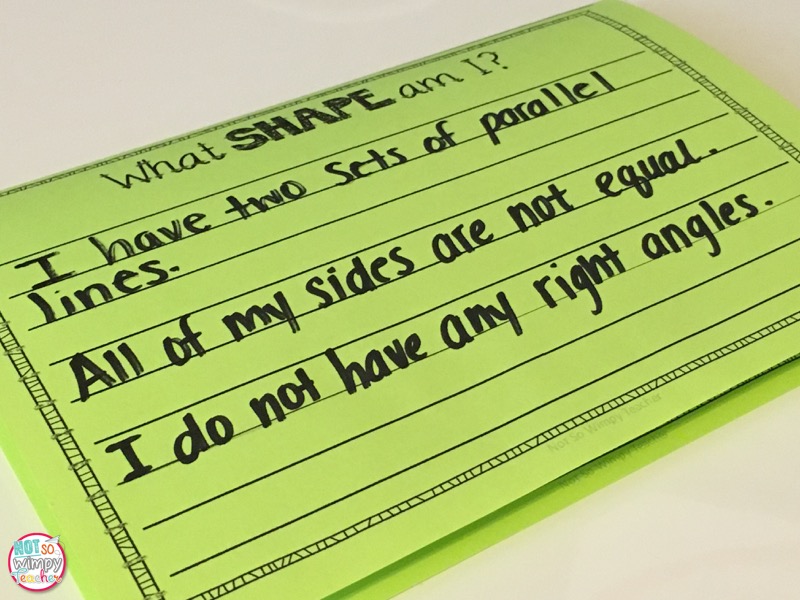 What SHAPE am I?
I have two sets of parallel
lines.
All of my sides are not equal.
I do not have any right angles.
Not So Wimpy Teacher
NOT SO
Wimpy
Teacher